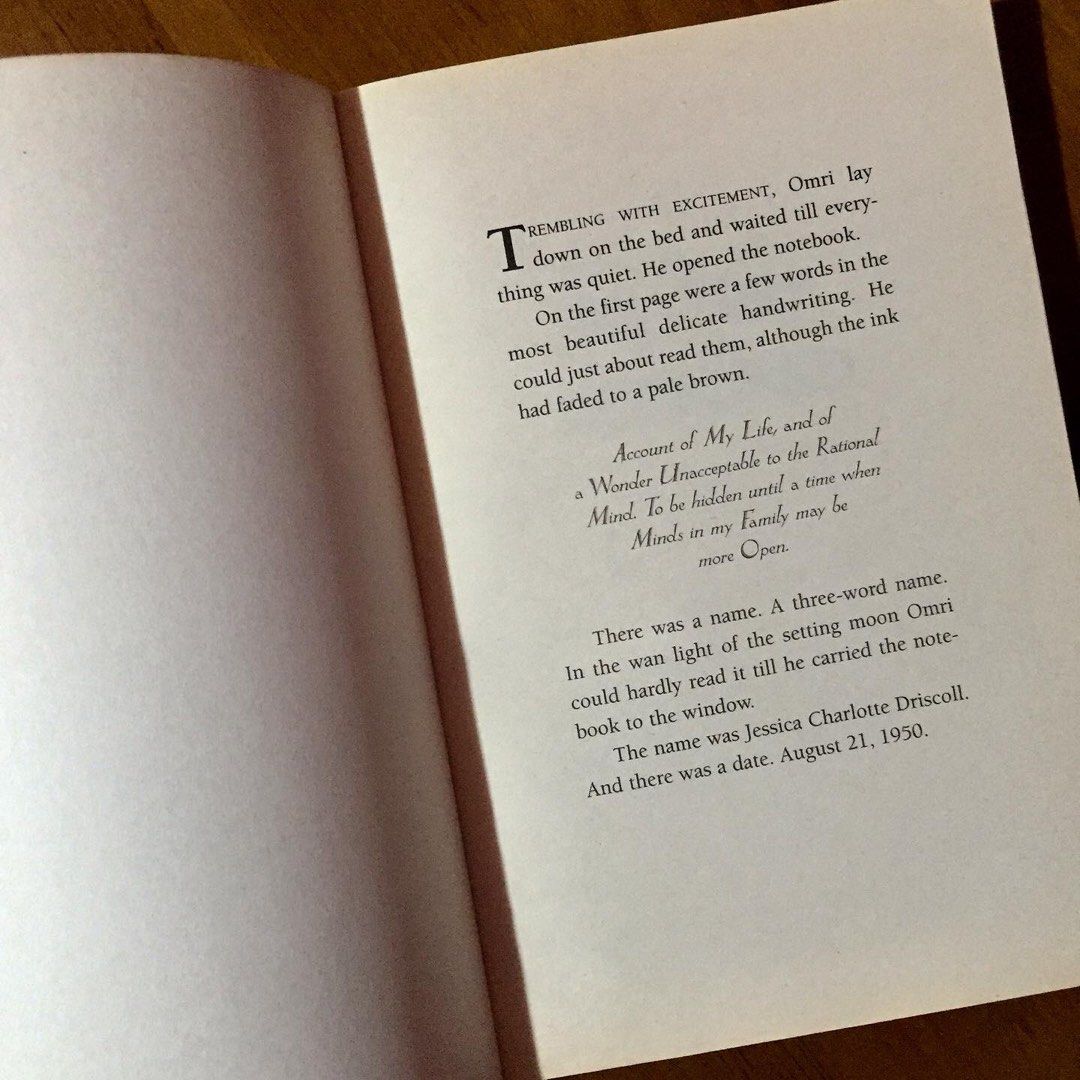 TREMBLING WITH EXCITEMENT, Omri lay
down on the bed and waited till every-
thing was quiet. He opened the notebook.
On the first page were a few words in the
most beautiful delicate handwriting. He
could just about read them, although the ink
had faded to a pale brown.
Account of My Life, and of
a Wonder Unacceptable to the Rational
Mind. To be hidden until a time when
Minds in my Family may be
more Open.
There was a name. A three-word name.
In the wan light of the setting moon Omri
could hardly read it till he carried the note-
book to the window.
The name was Jessica Charlotte Driscoll.
And there was a date. August 21, 1950.